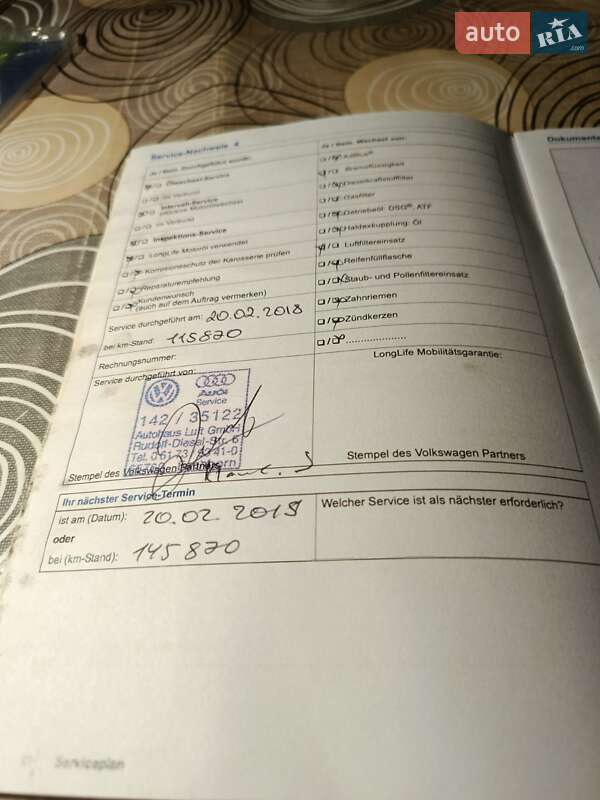 auto RIA .com
Service-Nachweis 4
Dokumenta
Ja / Nein, Durchgeführt wurde:
Ja / Nein, Wechsel von:
Ölwechsel-Service
AdBlue®
im Verbund
Bremsflüssigkeit
Intervall-Service
inklusive Motorölwechsel
Dieselkraftstofffilter
im Verbund
Gasfilter
Inspektions-Service
Getriebeöl: DSG®, ATF
LongLife Motoröl verwendet
Haldexkupplung: Öl
Korrosionsschutz der Karosserie prüfen
Luftfiltereinsatz
Reparaturempfehlung
Reifenfüllflasche
Kundenwunsch
(auch auf dem Auftrag vermerken)
Staub- und Pollenfiltereinsatz
Service durchgeführt am: 20.02.2018
Zahnriemen
bei km-Stand: 115870
Zündkerzen
Rechnungsnummer:
LongLife Mobilitätsgarantie:
Service durchgeführt von:
Audi
Service
142 / 35122
Autohaus Luft GmbH
Rudolf-Diesel-Str. 6
Stempel des Volkswagen Partners
Stempel des Volkswagen Partners
Ihr nächster Service-Termin
Welcher Service ist als nächster erforderlich?
ist am (Datum): 20.02.2019
oder
bei (km-Stand): 145870
Serviceplan